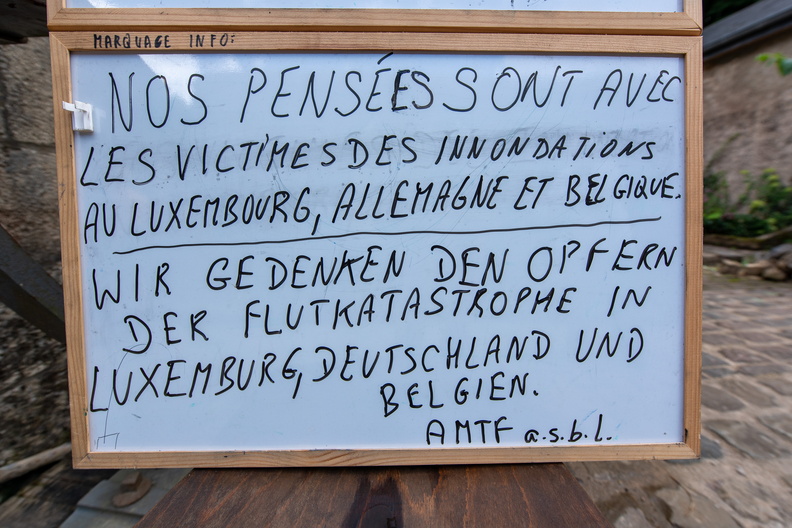 MARQUAGE INFO:
NOS PENSÉES SONT AVEC
LES VICTIMES DES INNONDATIONS
AU LUXEMBOURG, ALLEMAGNE ET BELGIQUE.
WIR GEDENKEN DEN OPFERN
DER FLUTKATASTROPHE IN
LUXEMBURG, DEUTSCHLAND UND
BELGIEN.
AMTF a.s.b.l.